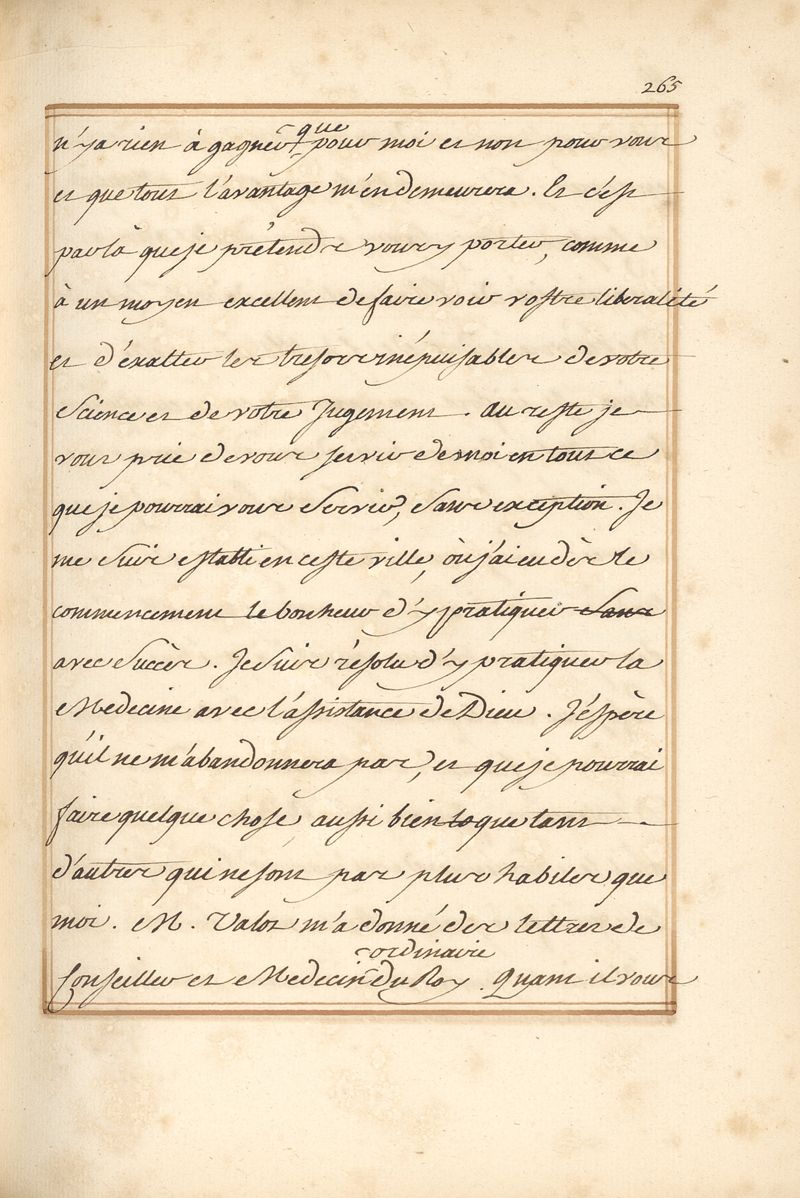 265
n'y a rien à gagner que pour moi et non pour vous
et que tout l'avantage m'en demeurera. Et c'est
par là que je prétends vous y porter, comme
à un moyen excellent de faire voir vostre liberalité
et d'éxalter les tresors inépuisables de votre
Science et de votre Jugement. Au reste je
vous prie de vous servir de moi en tout ce
que je pourrai vous servir, sans exception. Je
me suis establi en ceste ville, où j'ai eu dès le
commencement le bonheur d'y pratiquer sans
avec succès. Je suis résolu d'y pratiquer la
Medecine avec l'assistance de Dieu. J'éspère
qu'il ne m'abandonnera pas, et que je pourrai
faire quelque chose, aussi bien que tant
d'autres qui ne sont pas plus habiles que
moi. M. Valot m'a donné des lettres de
Conseiller et Medecin ordinaire du Roy. Quant il vous